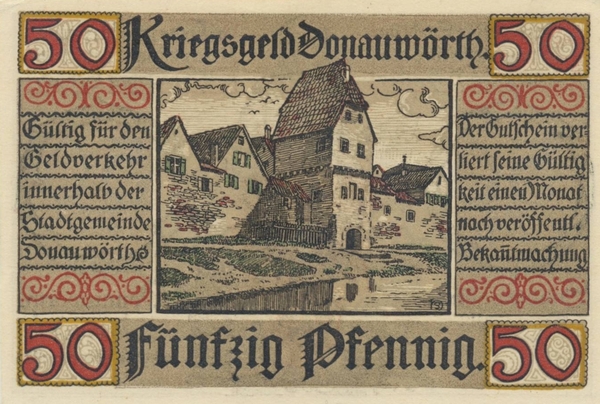 50 Kriegsgeld Donauwörth. 50
Gültig für den
Geldverkehr
innerhalb der
Stadtgemeinde
Donauwörths
Der Gutschein ver-
liert seine Gültig
keit einen Monat
nach veröffentl.
Bekanntmachung
50 Fünfzig Pfennig. 50